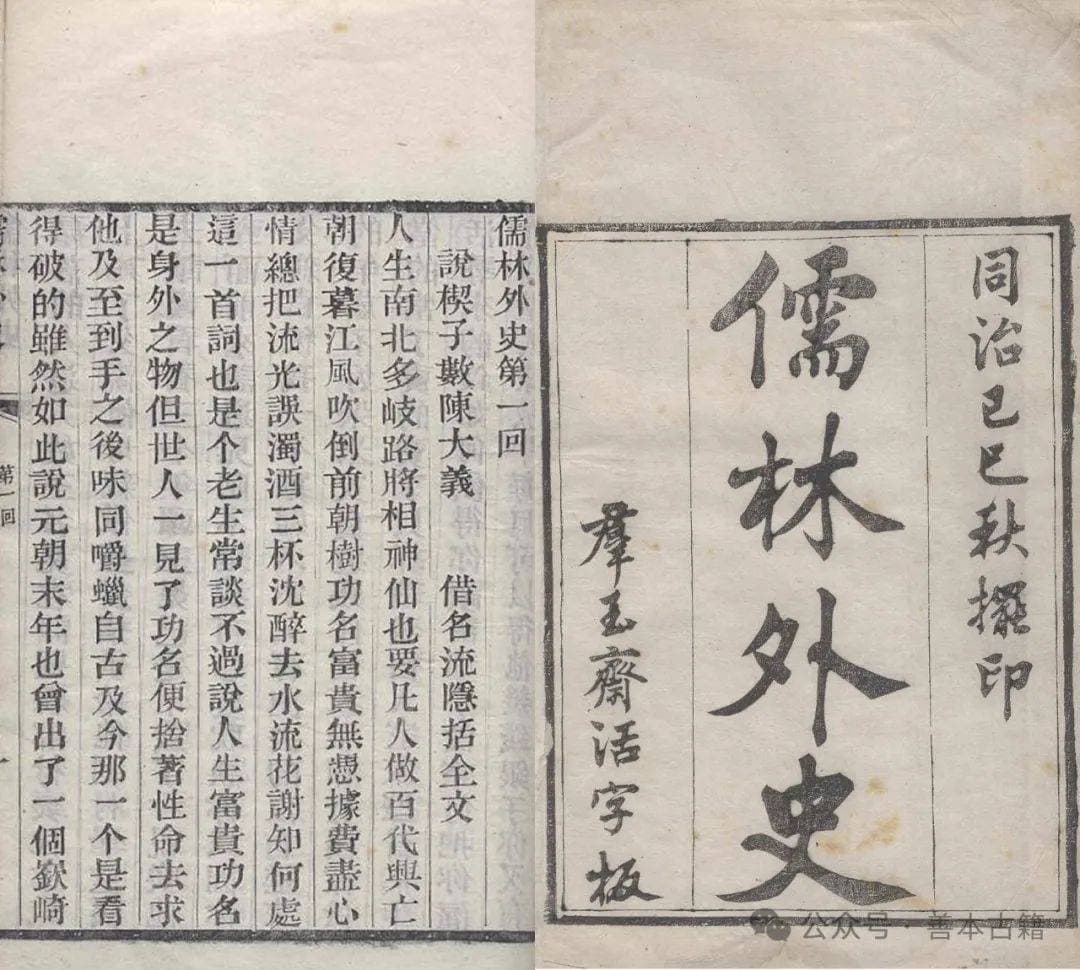 同治己巳秋擺印
儒林外史
羣玉齋活字板
儒林外史第一回
說楔子敷陳大義 借名流隱括全文
人生南北多岐路將相神仙也要凡人做百代興亡
朝復暮江風吹倒前朝樹功名富貴無憑據費盡心
情總把流光誤濁酒三杯沈醉去水流花謝知何處
這一首詞也是个老生常談不過說人生富貴功名
是身外之物但世人一見了功名便捨著性命去求
他及至到手之後味同嚼蠟自古及今那一个是看
得破的雖然如此說元朝末年也曾出了一個嶔崎
第一回
公众号·善本古籍